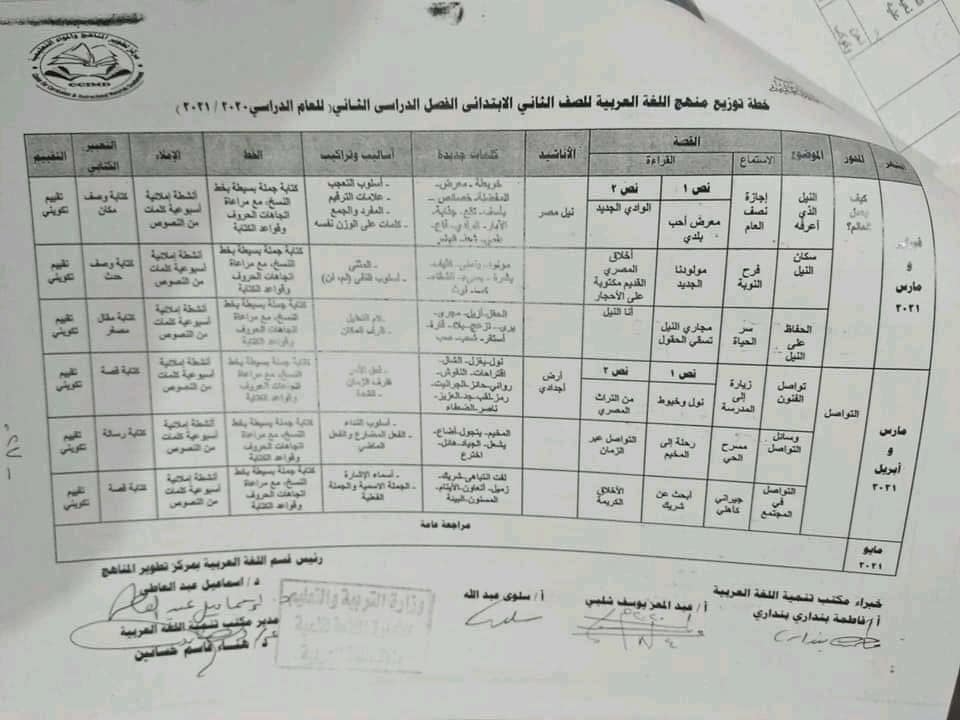 مركز تطوير المناهج والمواد التعليمية
CCIMD
خطة توزيع منهج اللغة العربية للصف الثاني الابتدائى الفصل الدراسى الثاني( للعام الدراسي ٢٠٢٠ / ٢٠٢١ )
المحور
الموضوع
القصة
الاستماع
القراءة
الأناشيد
كلمات جديدة
أساليب وتراكيب
الخط
الإملاء
التعبير الكتابي
التقييم
و
مارس
٢٠٢١
كيف يعمل العالم؟
النيل الذي أعرفه
إجازة نصف العام
نص ١
معرض أحب بلدي
نص ٢
الوادي الجديد
نيل مصر
خريطة - معرض-
- أسلوب التعجب
- علامات الترقيم
- المفرد والجمع
- كلمات على الوزن نفسه
كتابة جملة بسيطة بخط النسخ، مع مراعاة اتجاهات الحروف وقواعد الكتابة
أنشطة إملائية أسبوعية كلمات من النصوص
كتابة وصف مكان
تقييم تكويني
سكان النيل
فرح النوبة
مولودنا الجديد
أخلاق المصري القديم مكتوبة على الأحجار
- المثنى
- أسلوب النفي (لم، لن)
كتابة جملة بسيطة بخط النسخ، مع مراعاة اتجاهات الحروف وقواعد الكتابة
أنشطة إملائية أسبوعية كلمات من النصوص
كتابة وصف حدث
تقييم تكويني
الحفاظ على النيل
سر الحياة
مجاري النيل تسقي الحقول
أنا النيل
- لام التعليل
- ظرف المكان
كتابة جملة بسيطة بخط النسخ، مع مراعاة اتجاهات الحروف وقواعد الكتابة
أنشطة إملائية أسبوعية كلمات من النصوص
كتابة مقال مصغر
تقييم تكويني
مارس
و
أبريل
٢٠٢١
التواصل
تواصل الفنون
زيارة إلى المدرسة
نص ١
نول وخيوط
نص ٢
من التراث المصري
أرض أجدادي
نول- يغزل- الشال-
اقتراحات- النقوش-
رمز- لقب- جد- العزيز-
ناصر- الضعفاء
- فعل الأمر
- ظرف الزمان
كتابة جملة بسيطة بخط النسخ، مع مراعاة اتجاهات الحروف وقواعد الكتابة
أنشطة إملائية أسبوعية كلمات من النصوص
كتابة قصة
تقييم تكويني
وسائل التواصل
مسرح الحي
رحلة إلى المخيم
التواصل عبر الزمان
المخيم- يتجول- أضاع-
يشعل- الجياد- هائل-
اخترع
- أسلوب النداء
- الفعل المضارع والفعل الماضي
كتابة جملة بسيطة بخط النسخ، مع مراعاة اتجاهات الحروف وقواعد الكتابة
أنشطة إملائية أسبوعية كلمات من النصوص
كتابة رسالة
تقييم تكويني
التواصل في المجتمع
جيراني كأهلي
ابحث عن شريك
الأخلاق الكريمة
لفت انتباهي- شريك-
زميل- أتعاون- الأيتام-
المسنون- البيئة
- أسماء الإشارة
- الجملة الاسمية والجملة الفعلية
كتابة جملة بسيطة بخط النسخ، مع مراعاة اتجاهات الحروف وقواعد الكتابة
أنشطة إملائية أسبوعية كلمات من النصوص
كتابة قصة
تقييم تكويني
مايو
٢٠٢١
مراجعة عامة
خبراء مكتب تنمية اللغة العربية
أ/ فاطمة بنداري بنداري
أ/ عبد المعز يوسف شلبي
أ/ سلوى عبد الله
رئيس قسم اللغة العربية بمركز تطوير المناهج
د/ اسماعيل عبد العاطي
مدير مكتب تنمية اللغة العربية
د/ هناء قاسم حسانين
وزارة التربية والتعليم